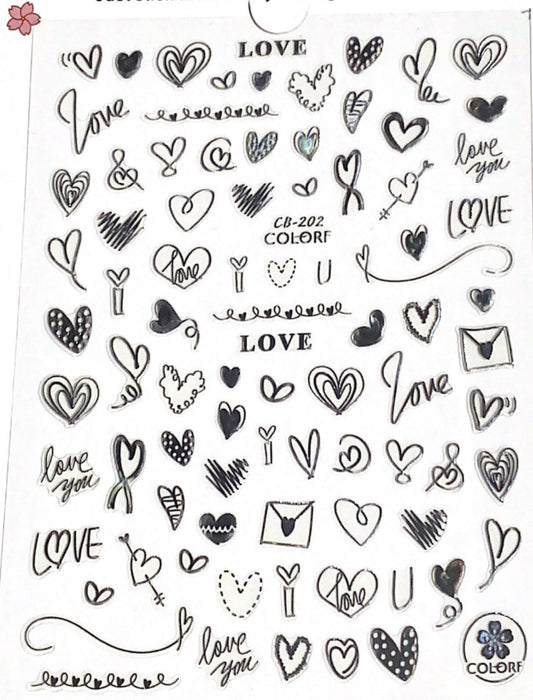 LOVE
Love
love
you
LOVE
CB-202
COLORF
love
i
U
LOVE
Love
i
love
you
LOVE
i
love
U
love
you
COLORF